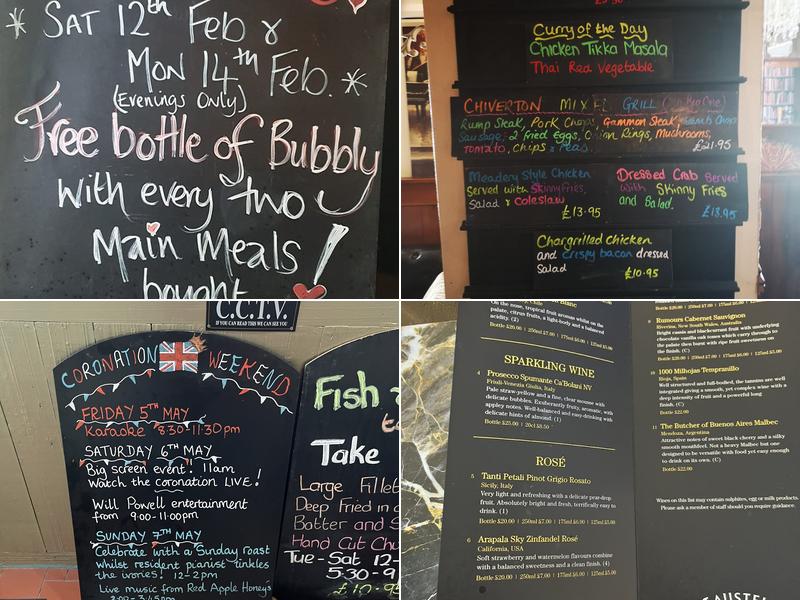 SAT 12th Feb &
MON 14th Feb.
(Evenings Only)
Free bottle of Bubbly
with every two
Main Meals!
bought
Curry of the Day
Chicken Tikka Masala
Thai Red Vegetable
CHIVERTON MIXED GRILL
Rump Steak, Pork Chops, Gammon Steak,
Sausage, 2 fried Eggs, Onion Rings, Mushrooms,
Tomato, Chips & Peas. £21.95
Meadery Style Chicken
Served with Skinny Fries,
Salad & Coleslaw
£13.95
Dressed Crab Served
with Skinny Fries
and Salad.
£18.95
Chargrilled Chicken
and crispy bacon dressed
Salad
£10.95
C.C.T.V.
IF YOU CAN READ THIS WE CAN SEE YOU
CORONATION WEEKEND
FRIDAY 5TH MAY
Karaoke 8:30-11:30pm
SATURDAY 6TH MAY
Big screen event! 11am
Watch the coronation LIVE!
Will Powell entertainment
from 9:00-11:00pm
SUNDAY 7TH MAY
Celebrate with a Sunday roast
whilst resident pianist tinkles
the ivories! 12-2pm
Live music from Red Apple Honeys
Fish
Take
Large Fillet
Deep Fried in
Batter and
Hand Cut Chu
Tue-Sat 12-
5:30-9
On the nose, tropical aromas whilst on the
palate, citrus fruits, a light body and a balanced
acidity. (2)
Bottle $20.00 | 250ml $7.00 | 175ml $6.00 | 125ml $5.00
SPARKLING WINE
4 Prosecco Spumante Ca'Bolani NV
Friuli-Venezia Giulia, Italy
Pale straw yellow and a fine, clear mousse with
delicate bubbles. Exuberantly fruity, aromatic, with
appley notes. Well-balanced and easy-drinking with
delicate hints of almond. (1)
Bottle $25.00 | 20cl $8.50
ROSÉ
5 Tanti Petali Pinot Grigio Rosato
Sicily, Italy
Very light and refreshing with a delicate pear-drop
fruit. Absolutely bright and fresh, terrifically easy to
drink. (1)
Bottle $20.00 | 250ml $7.00 | 175ml $6.00 | 125ml $5.00
6 Arapala Sky Zinfandel Rosé
California, USA
Soft strawberry and watermelon flavours combine
with a balanced sweetness and a clean finish. (4)
Bottle $20.00 | 250ml $7.00 | 175ml $6.00 | 125ml $5.00
Rumours Cabernet Sauvignon
Riverina, New South Wales, Australia
Bright cassis and blackcurrant fruit with underlying
chocolate vanilla oak tones which carry through to
the palate then burst with ripe fruit sweetness on
the finish. (C)
Bottle $20.00 | 250ml $7.00 | 175ml $6.00 | 125ml $5.00
10 1000 Milhojas Tempranillo
Rioja, Spain
Well structured and full-bodied, the tannins are well
integrated giving a smooth, yet complex wine with a
deep intensity of fruit and a powerful long
finish. (C)
Bottle $22.00
11 The Butcher of Buenos Aires Malbec
Mendoza, Argentina
Attractive notes of sweet black cherry and a silky
smooth mouthfeel. Not a heavy Malbec but one
designed to be versatile with food yet easy enough
to drink on its own. (C)
Bottle $22.00
Wines on this list may contain sulphites, egg or milk products.
Please ask a member of staff should you require guidance.
ST AUSTELL